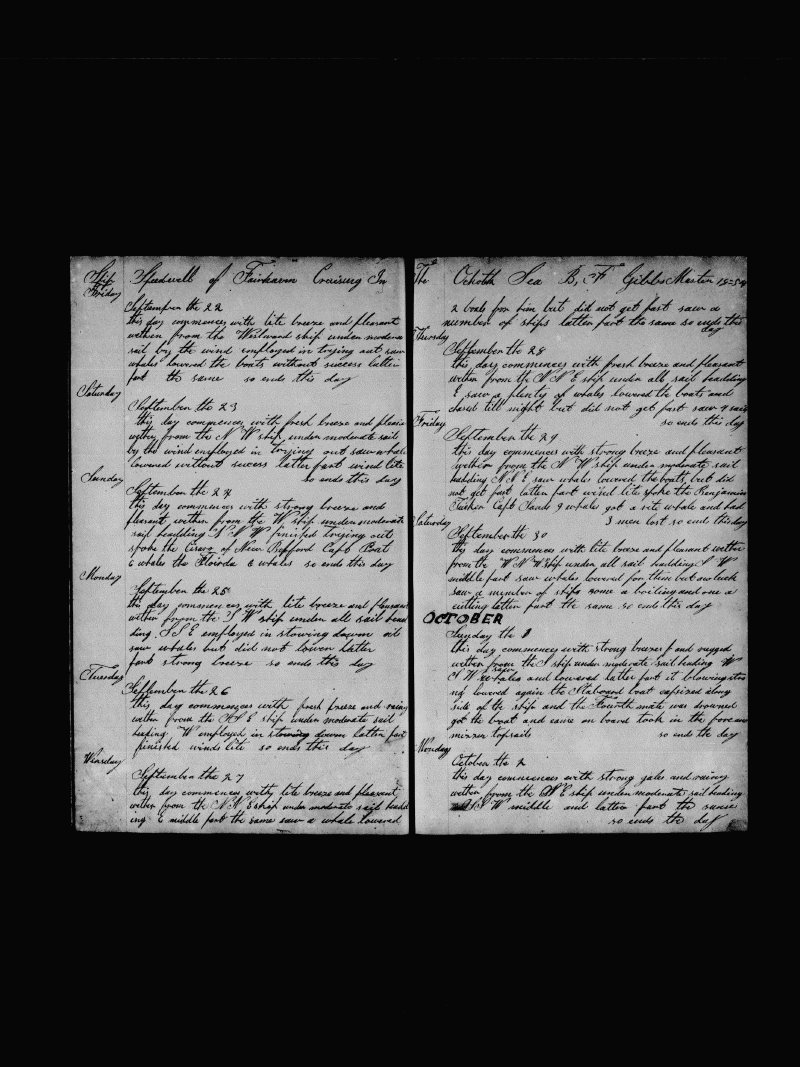 Ship Speedwell of Fairhaven Cruising In
Friday
September the 22
this day commences with lite breeze and pleasant
wether from the Westward ship under moderate
sail by the wind employed in trying out saw
whales lowered the boats without success latter
part the same so ends this day
Saturday
September the 23
this day commences with fresh breeze and pleasa
wether from the N W ship under moderate sail
by the wind employed in trying out saw whale
lowered without sucess latter part wind lite
so ends this day
Sunday
September the 24
this day commences with strong breeze and
pleasant wether from the W ship under moderate
sail headding S S W finished trying out
spoke the of New Bedford Capt
6 whales the Florida 6 whales so end this day
Monday
September the 25
this day commences with lite breeze and pleasant
wether from the S W ship under all sail head
ding S S E employed in stowing dowen oil
saw whales but did not lower latter
part strong breeze so ends this day
Tuesday
September the 26
this day commences with fresh breeze and rainy
wether from the S S E ship under moderate sail
heading W employed in stowing down latter part
finished winds lite so ends this day
Wensday
September the 27
this day commences with lite breeze and pleasent
wether from the N N E ship under moderate sail headd
ing E middle part the same saw a whale lowered
The Ochotk Sea B, F Gibbs Master 1854
2 boats for him but did not get fast saw a
number of ships latter part the same so ends this
day
Thursday
September the 28
this day commences with fresh breeze and pleasant
wether from the N N E ship under all sail headding
E saw a plenty of whales lowered the boats and
chased till night but did not get fast saw 4 sails
so ends this day
Friday
September the 29
this day commences with strong breeze and pleasant
wether from the N W ship under moderate sail
hadding N N E saw whales lowered the boats but did
not get fast latter part wind lite spoke the Benjamin
Tucker Capt Sands 9 whales got a rite whale and had
3 men lost so end this day
Saturday
September the 30
this day commences with lite breeze and pleasant wether
from the W N W ship under all sail hadding S W
middle part saw whales lowered for them but no luck
saw a number of ships some a boiling and one a
cutting latter part the same so ends this day
OCTOBER
Sunday the 1
this day commences with strong breezes and rugged
wether from the S ship under moderate sail heading W
S W saw whales and lowered latter part it blowing stro
ng lowered again the Staboard boat capsized along
side of the ship and the Fourth mate was drowned
got the boat and came on board took in the fore and
mizzen topsails so ends the day
Monday
October the 2
this day commences with strong gales and rainy
wether from the W E ship under moderate sail heading
S W middle and latter part the same
so ends the day